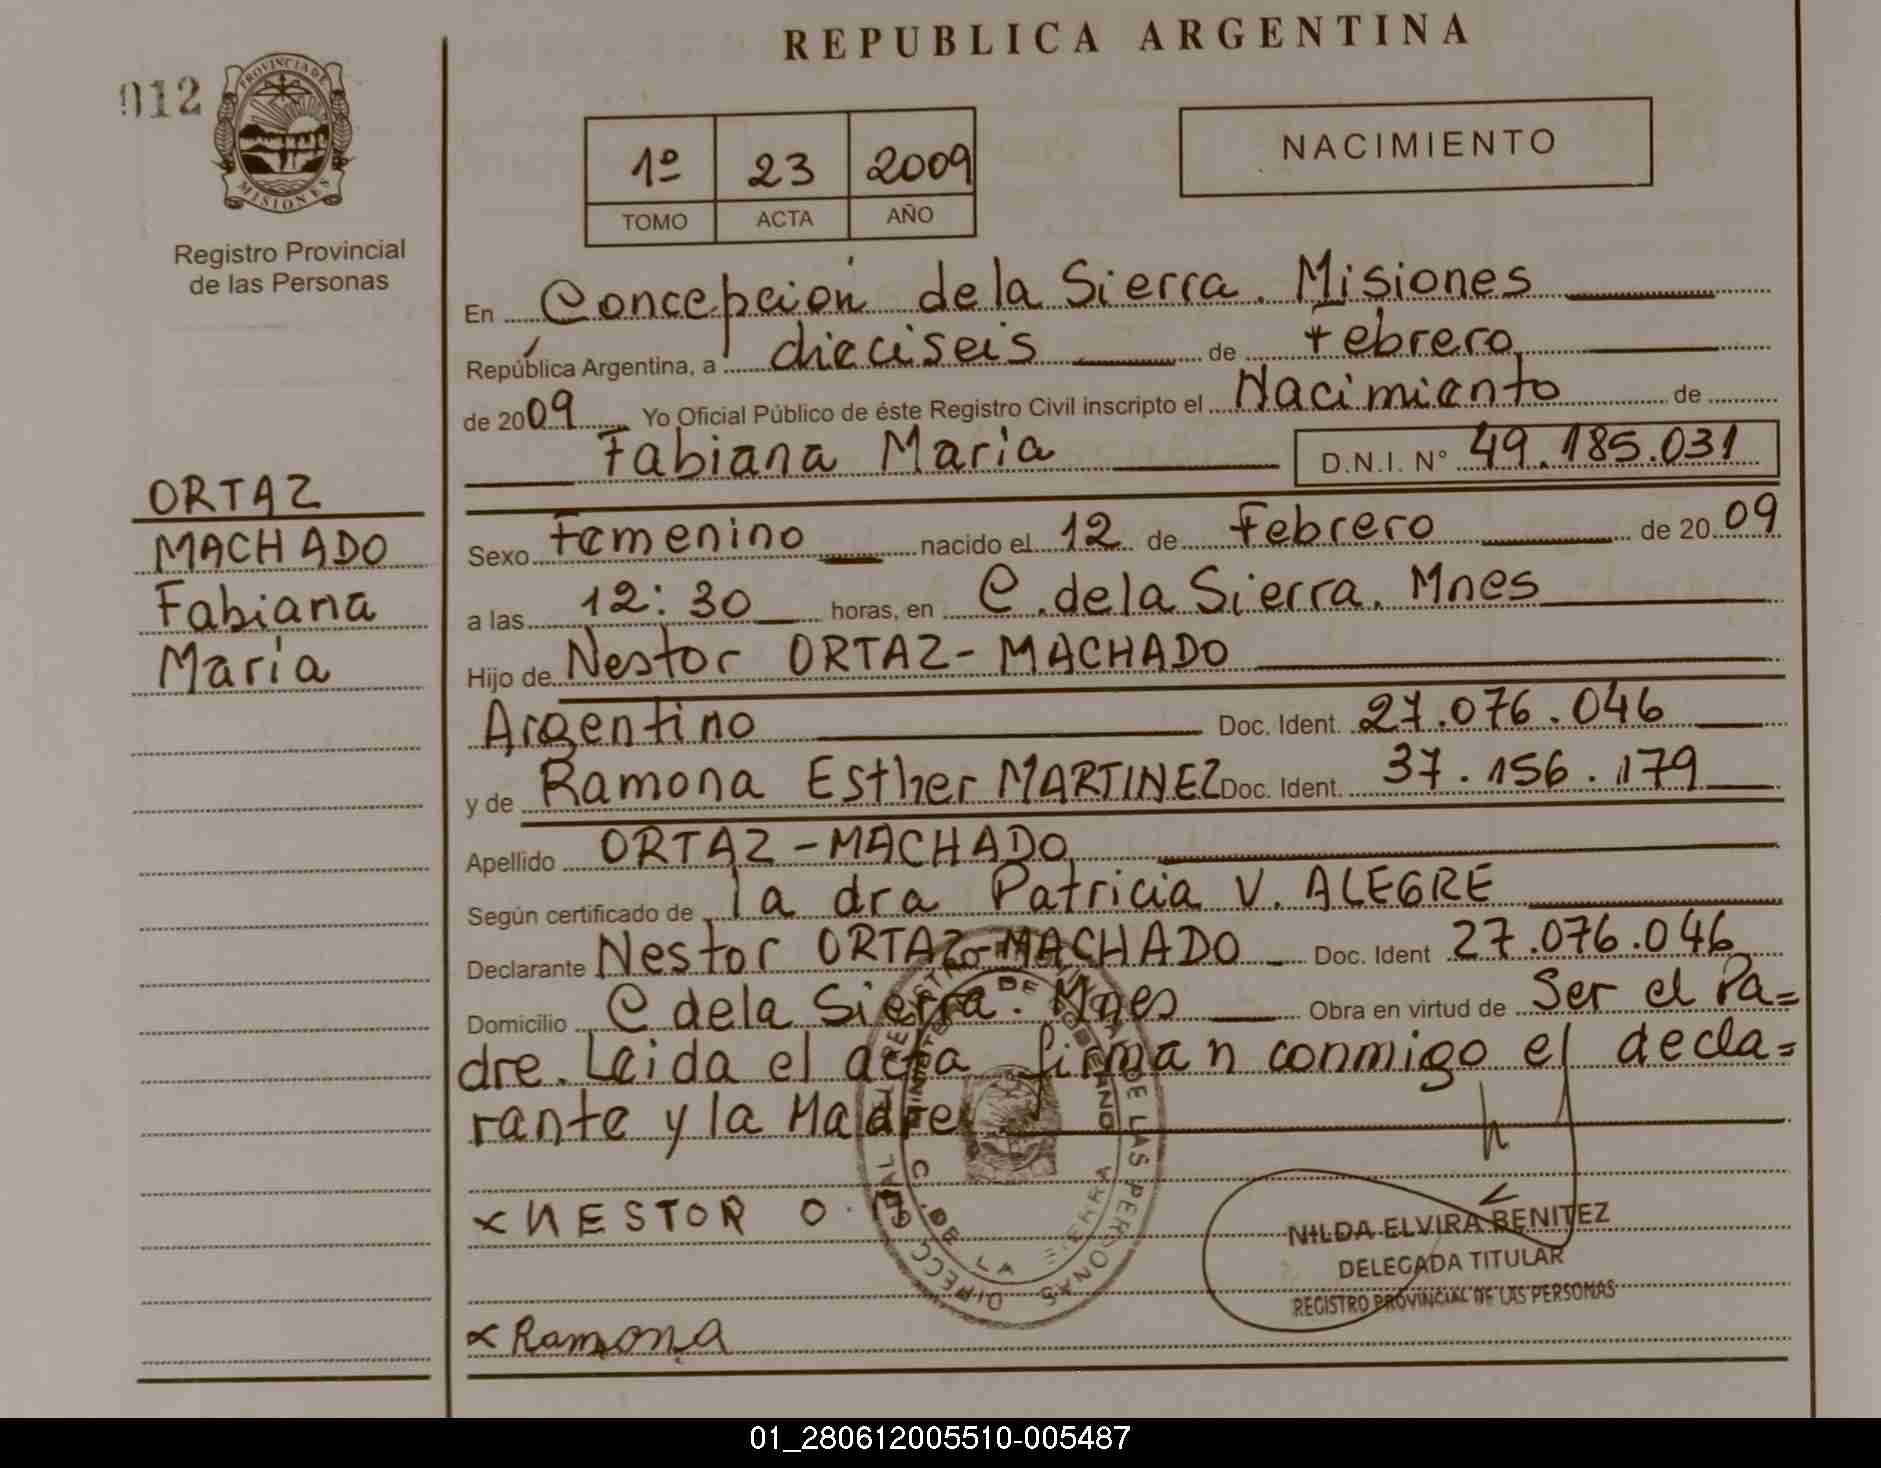 REPUBLICA ARGENTINA
012
PROVINCIA DE
MISIONES
Registro Provincial
de las Personas
1º 23 2009
TOMO ACTA AÑO
NACIMIENTO
En Concepción de la Sierra. Misiones
República Argentina, a dieciseis de Febrero
de 2009 Yo Oficial Público de éste Registro Civil inscripto el Nacimiento de
Fabiana María D.N.I. Nº 49.185.031
ORTAZ
MACHADO
Fabiana
María
Sexo Femenino nacido el 12 de Febrero de 2009
a las 12:30 horas, en C. de la Sierra. Mnes
Hijo de Nestor ORTAZ-MACHADO
Argentino Doc. Ident. 27.076.046
y de Ramona Esther MARTINEZ Doc. Ident. 37.156.179
Apellido ORTAZ-MACHADO
Según certificado de la dra Patricia V. ALEGRE
Declarante Nestor ORTAZ-MACHADO Doc. Ident 27.076.046
Domicilio C de la Sierra. Mnes Obra en virtud de Ser el Pa=
dre. Leida el acta firman conmigo el decla=
rante y la Madre
x NESTOR O. M
NILDA ELVIRA BENITEZ
DELEGADA TITULAR
REGISTRO PROVINCIAL DE LAS PERSONAS
x Ramona
DE LAS PERSONAS
C. DE LA SIERRA
01_280612005510-005487